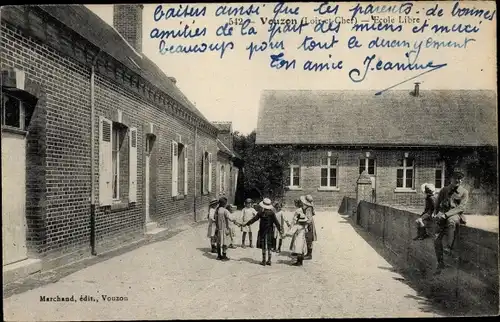 512 - Vouzon (Loir-et-Cher) - Ecole Libre
baises ainsi que les parents. de bonnes
amitiés de la part des miens et merci
beaucoup pour tout le dérangement
Ton amie Jeannine
Marchand, édit., Vouzon